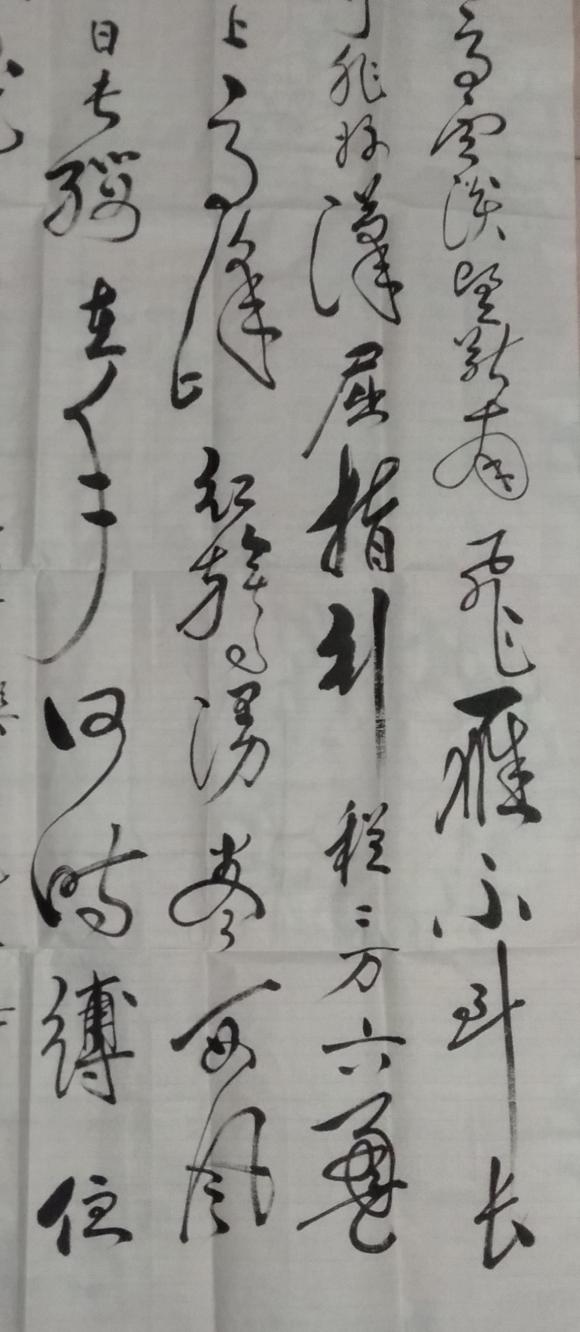 高雲淡望断南飛雁不到长
非好漢屈指行程二万六盘
上高峰红旗漫卷西风
日长缨在手何時缚住